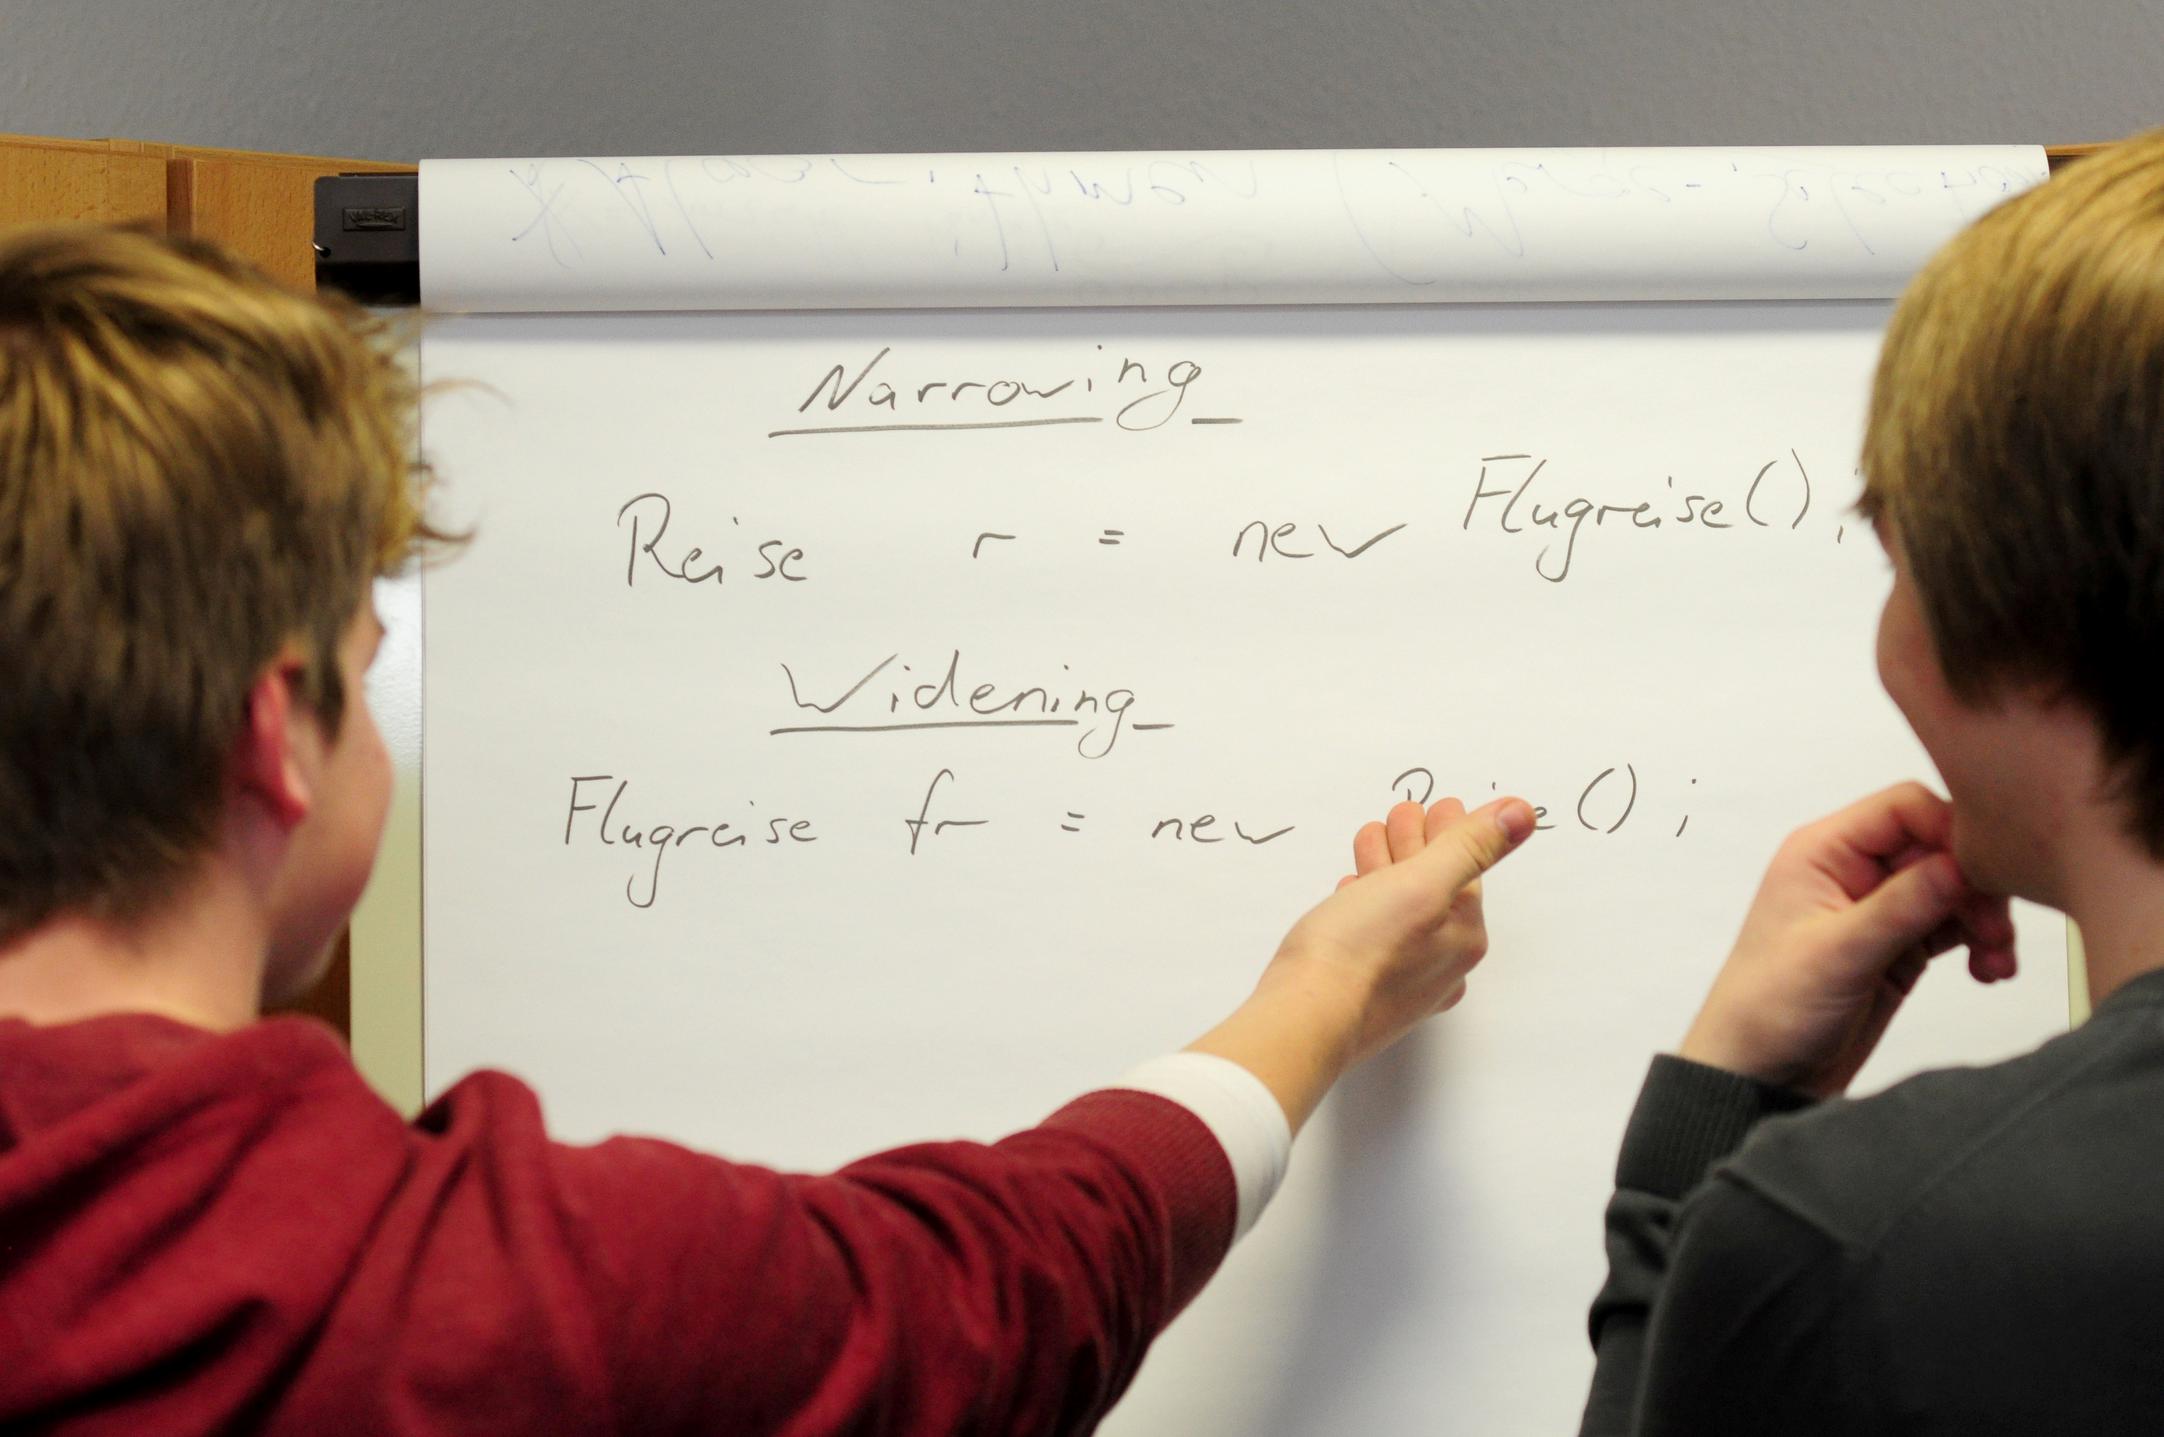 Narrowing
Reise r = new Flugreise();
Widening
Flugreise fr = new Reise();